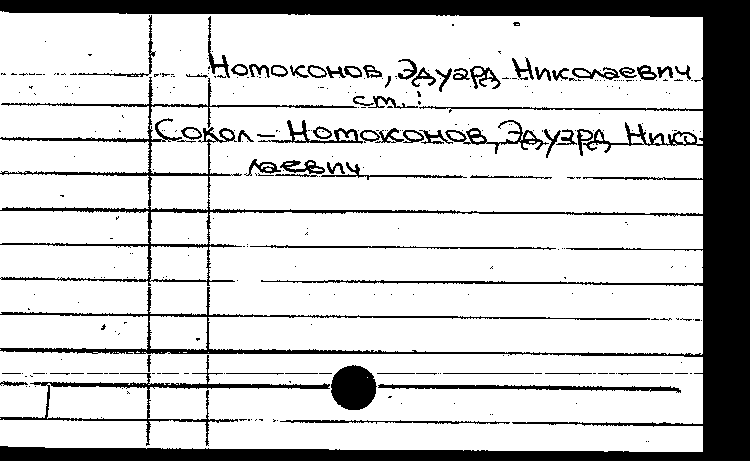 Номоконов, Эдуард Николаевич
см.:
Сокол – Номоконов, Эдуард Нико-
лаевич